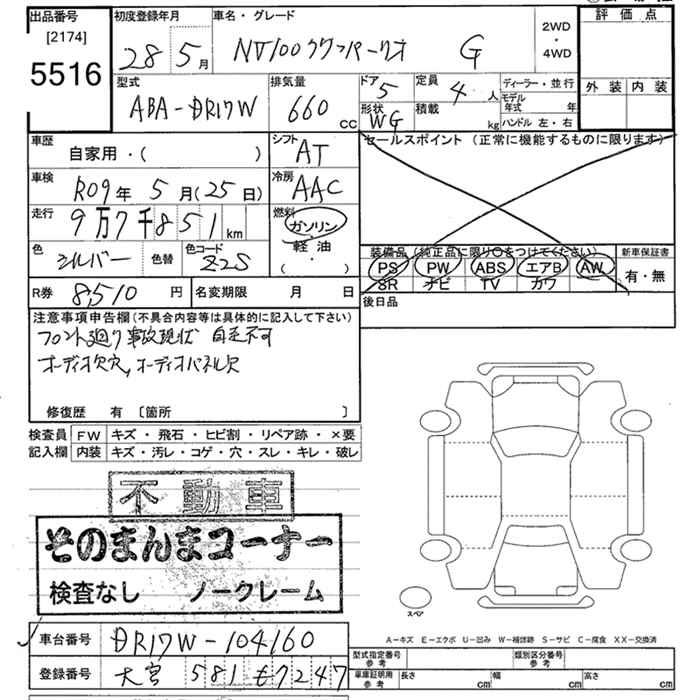 出品番号
[2174]
5516
初度登録年月
28 5月
車名・グレード
NV100クリッパーリオ G
2WD
・
4WD
評価点
外装 内装
型式
ABA-DR17W
排気量
660 cc
ドア 5
形状 WG
定員 4人
積載 kg
ディーラー・並行
モデル年式 年
ハンドル 左・右
車歴
自家用・( )
シフト AT
セールスポイント (正常に機能するものに限ります)
車検
R09年 5月(25日)
冷房 AAC
走行
9万7千851km
燃料
ガソリン
軽油
( ・ )
色 シルバー 色替
色コード Z2S
装備品 (純正品に限り○をつけてください)
PS PW ABS エアB AW
SR ナビ TV カワ
新車保証書
有・無
R券 8,510円
名変期限 月 日
後日品
注意事項申告欄(不具合内容等は具体的に記入して下さい)
フロント廻り事故現状 自走不可
オーディオ欠穴,オーディオパネル欠
修復歴 有 〔箇所 〕
検査員 FW キズ・飛石・ヒビ割・リペア跡・×要
記入欄 内装 キズ・汚レ・コゲ・穴・スレ・キレ・破レ
不動車
そのまんまコーナー
検査なし ノークレーム
スペア
A-キズ E-エクボ U-凹み W-補修跡 S-サビ C-腐食 XX-交換済
車台番号 DR17W-104160
登録番号 大宮 581 も7247
型式指定番号 参考
類別区分番号 参考
車庫証明用 参考
長さ cm 幅 cm 高さ cm